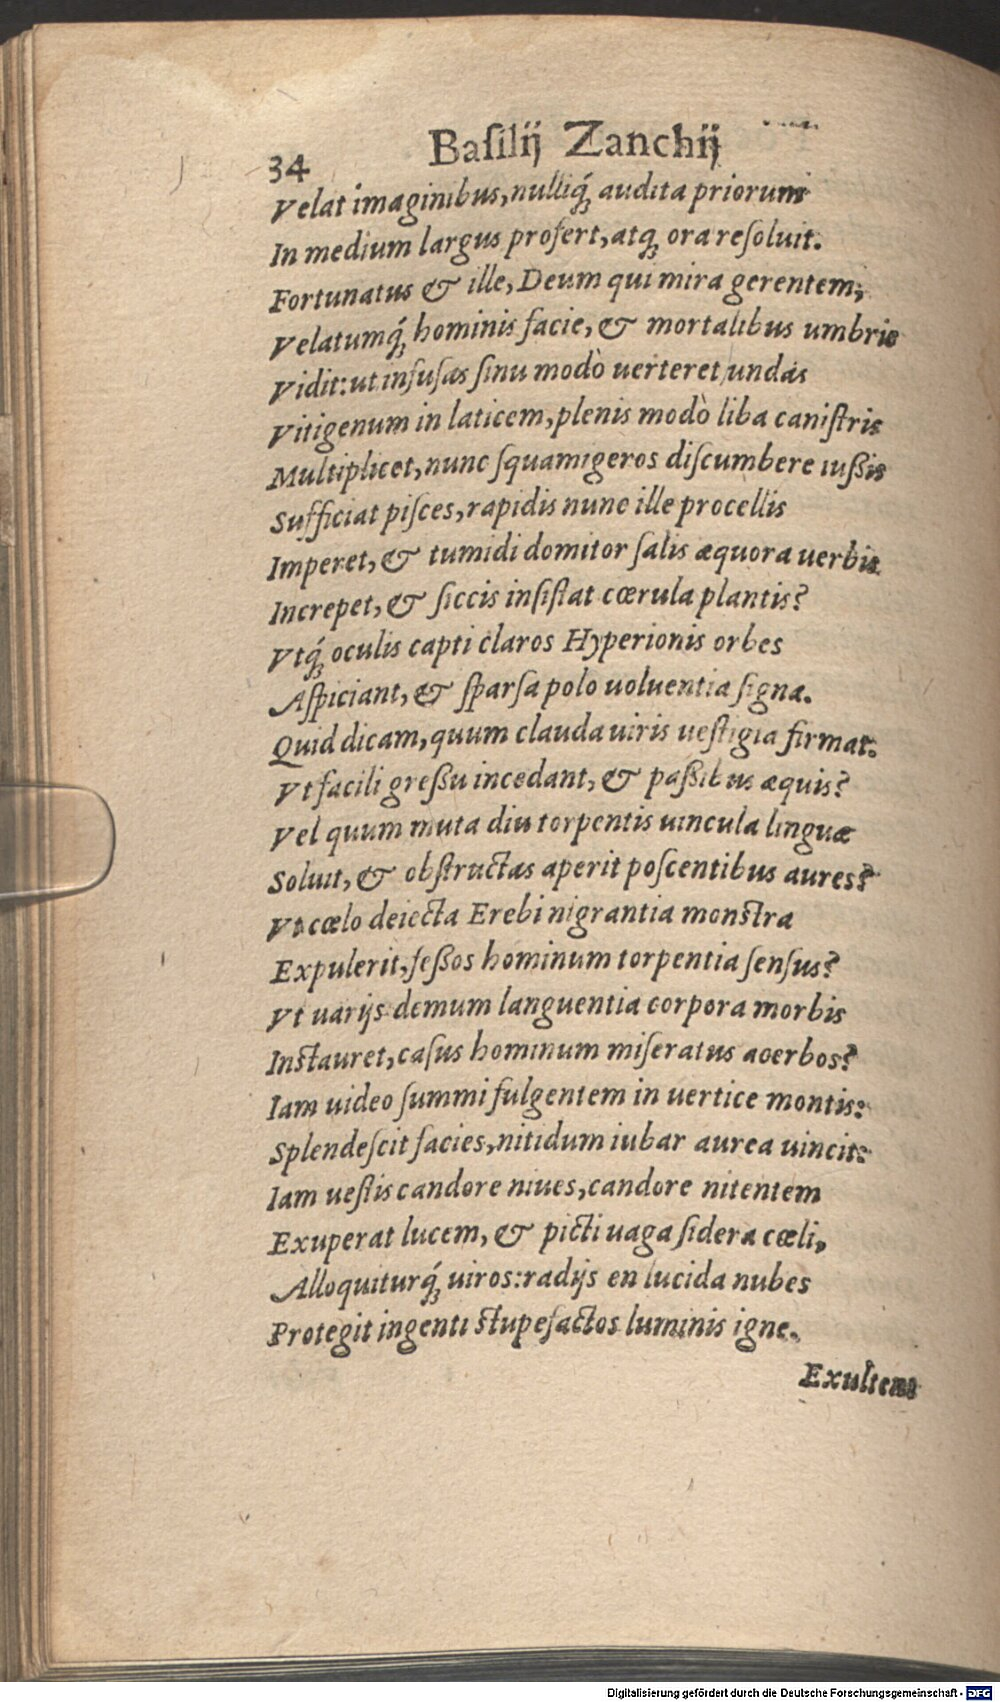 34 Baſilij Zanchij
Velat imaginibus, nulliq́; audita priorum
In medium largus profert, atq; ora reſoluit.
Fortunatus & ille, Deum qui mira gerentem,
Velatumq́; hominis facie, & mortalibus umbris
Vidit: ut infuſas ſinu modò uerteret undas
Vitigenum in laticem, plenis modò liba caniſtris
Multiplicet, nunc ſquamigeros diſcumbere iuſsis
Sufficiat piſces, rapidis nunc ille procellis
Imperet, & tumidi domitor ſalis æquora uerbis
Increpet, & ſiccis inſiſtat cœrula plantis?
Vtq́; oculis capti claros Hyperionis orbes
Aſpiciant, & ſparſa polo uoluentia ſigna.
Quid dicam, quum clauda uiris ueſtigia firmat.
Vt facili greſſu incedant, & paſsibus æquis?
Vel quum muta diu torpentis uincula linguæ
Soluit, & obſtructas aperit poſcentibus aures?
Vt cœlo deiecta Erebi nigrantia monſtra
Expulerit, feſſos hominum torpentia ſenſus?
Vt uarijs demum languentia corpora morbis
Inſtauret, caſus hominum miſeratus acerbos?
Iam uideo ſummi fulgentem in uertice montis:
Splendeſcit facies, nitidum iubar aurea uincit:
Iam ueſtis candore niues, candore nitentem
Exuperat lucem, & picti uaga ſidera cœli,
Alloquiturq́; uiros: radijs en lucida nubes
Protegit ingenti ſtupefactos luminis igne.
Exultens
Digitalisierung gefördert durch die Deutsche Forschungsgemeinschaft - DFG